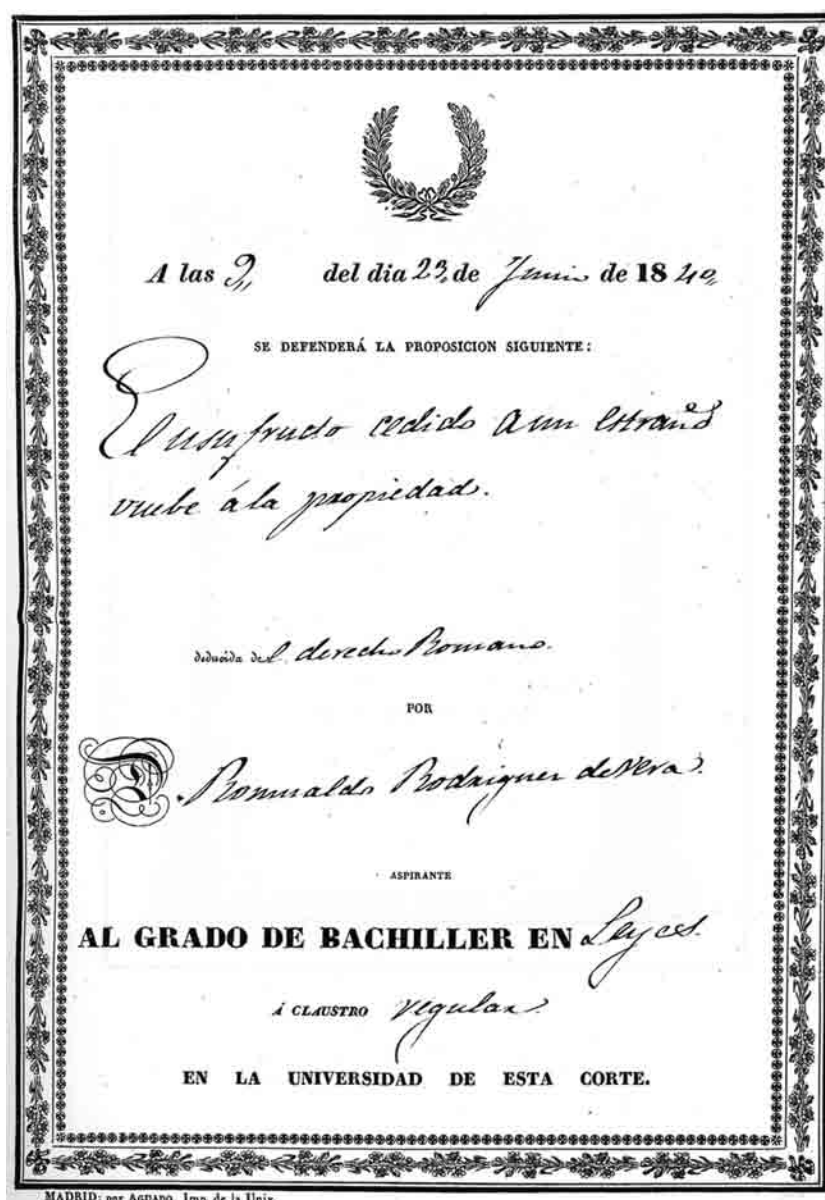 A las 9 del dia 23, de Junio de 1840,
SE DEFENDERÁ LA PROPOSICION SIGUIENTE:
El usufructo cedido a un estraño
vuelve á la propiedad.
deducida del derecho Romano.
POR
D. Romualdo Rodriguez de Vera.
ASPIRANTE
AL GRADO DE BACHILLER EN Leyes.
Á CLAUSTRO regular.
EN LA UNIVERSIDAD DE ESTA CORTE.
MADRID: por AGUADO, Imp. de la Univ.